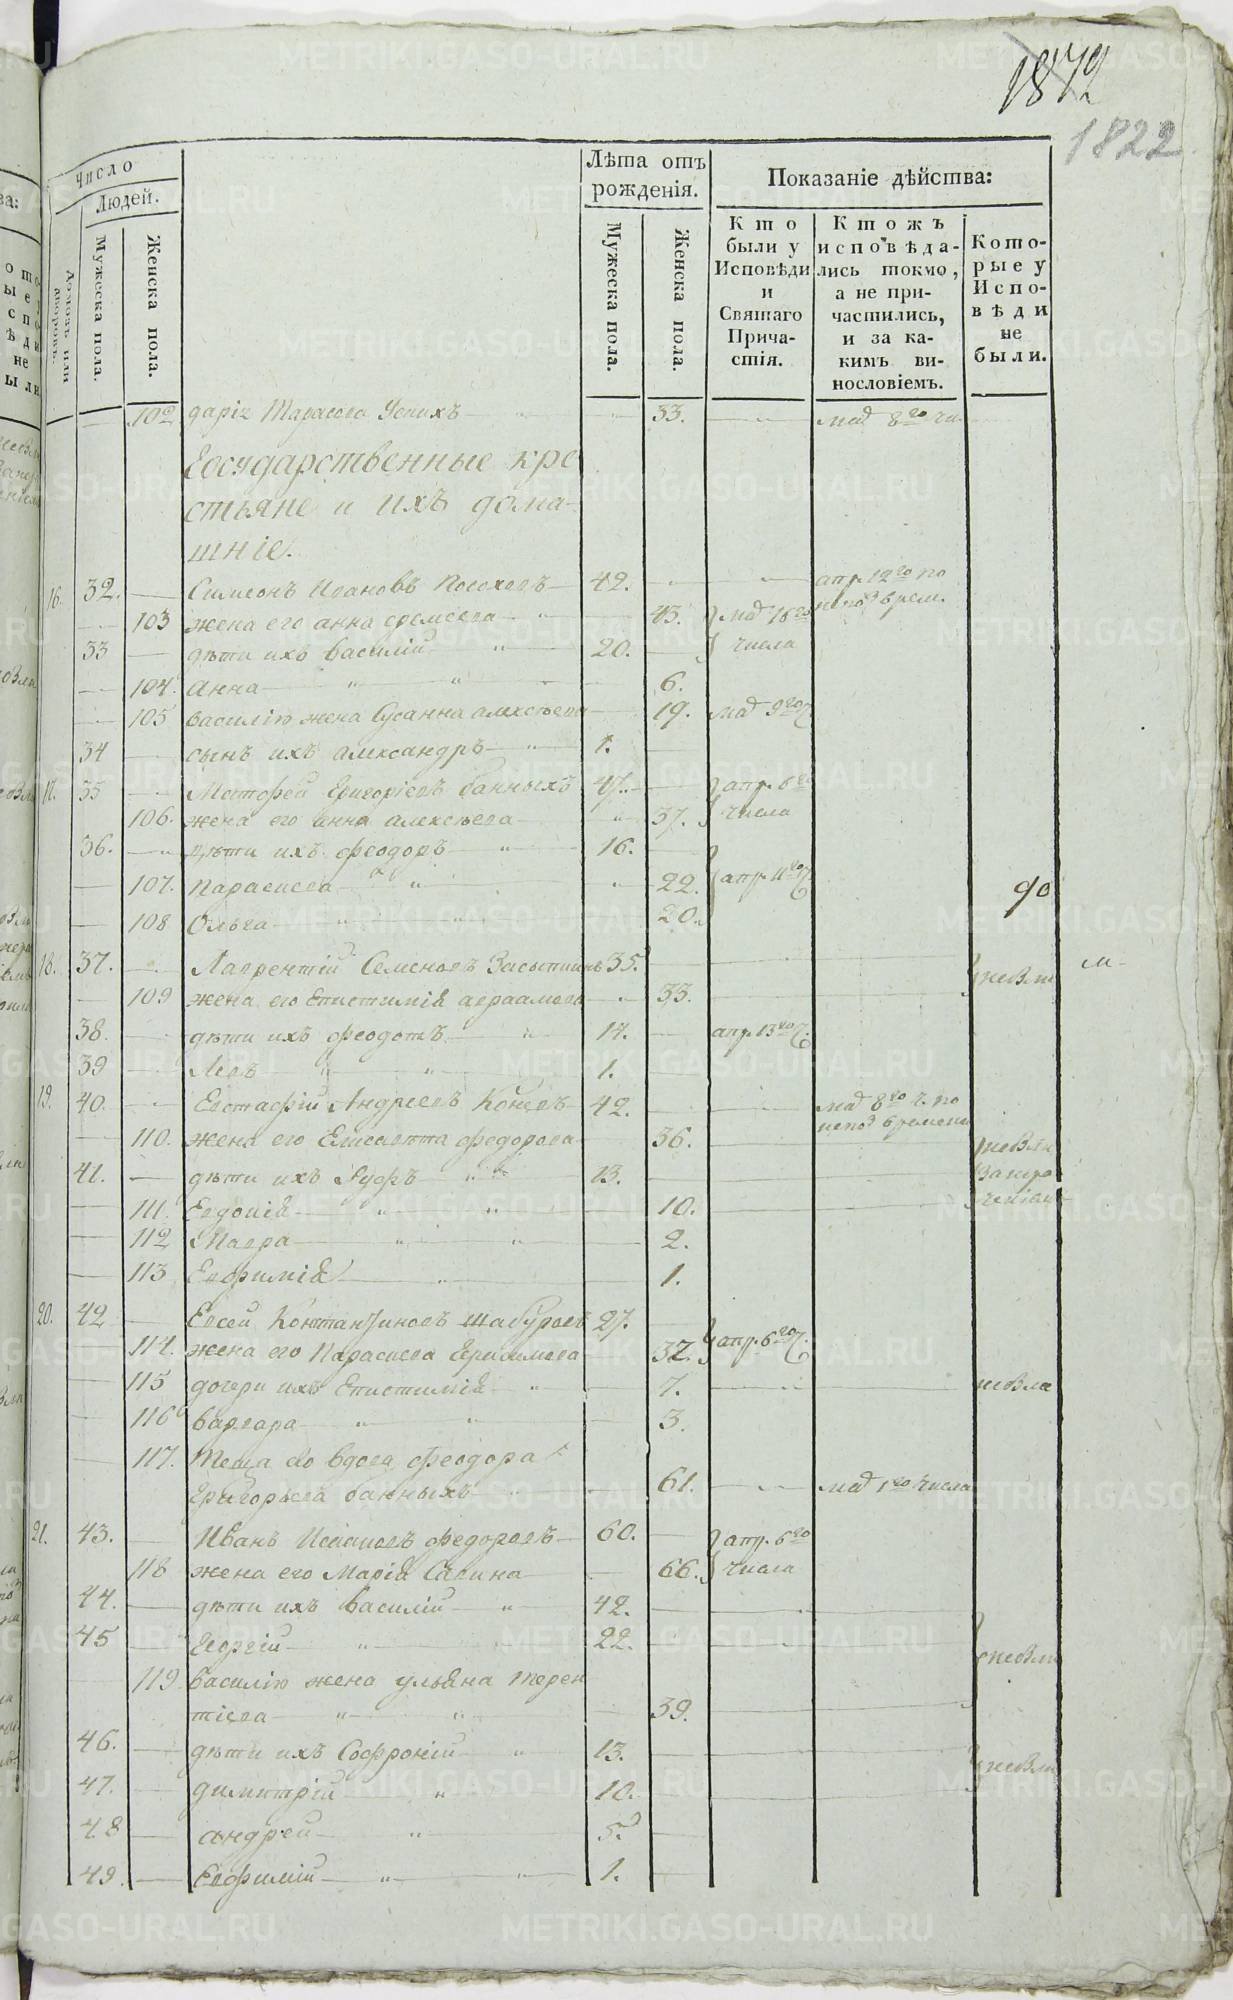 1872
1822
Число
Людей.
Домовъ или дворовъ.
Мужеска пола.
Женска пола.
Лѣта отъ рожденія.
Мужеска пола.
Женска пола.
Показаніе дѣйства:
Кто были у Исповѣди и Святаго Причастія.
Ктожъ исповѣдались токмо, а не причастились, и за какимъ винословіемъ.
Которые у Исповѣди не были.
102 дарія Тарасова 33. маія 8го чи
Государственные кре
стьяне и ихъ дома-
шніе.
16. 32. Симеонъ Ивановъ 42. апр. 12го по
103 жена его анна еремеева 43. маія 16го
33 дѣти ихъ василій 20. числа
104. анна 6.
105 василію жена Сусанна алексѣева 19. маія 9го ч.
34 сынъ ихъ александръ 1.
17. 35 Матфей Григоріевъ банныхъ 47. апр. 6го
106. жена его анна алексѣева 37. числа
36. дѣти ихъ феодоръ 16.
107. Параскева 22. апр. 11го ч.
90
108 Ольга 20.
18. 37. Лаврентій Семеновъ Засыпкинъ 35.
109 жена его Епистимія авраамова 33.
38. дѣти ихъ феодотъ 14. апр. 13го ч.
39 Левъ 1.
19. 40. Евстафій Андреевъ Концевъ 42. маія 8го ч. по
110. жена его Елисавета федорова 36.
41. дѣти ихъ Руфъ 13.
111. Евдокія 10.
112 Мавра 2.
113 Евфимія 1.
20. 42 Евсей Константиновъ шабуровъ 27.
114. жена его Параскева Герасимова 32. апр. 6го ч.
115 дочери ихъ Епистимія 7.
116 варвара 3.
117. Теща его вдова феодора
Григорьева банныхъ 61. маія 1го числа
21. 43. Иванъ Исааковъ федоровъ 60. апр. 6го
118 жена его Марія Савина 66. числа
44. дѣти ихъ василій 42.
45 Георгій 22.
119 василію жена ульяна терен
тіева 39.
46. дѣти ихъ Софроній 13.
47. димитрій 10.
48 андрей 5.
49. Евфимій 1.
METRIKI.GASO-URAL.RU